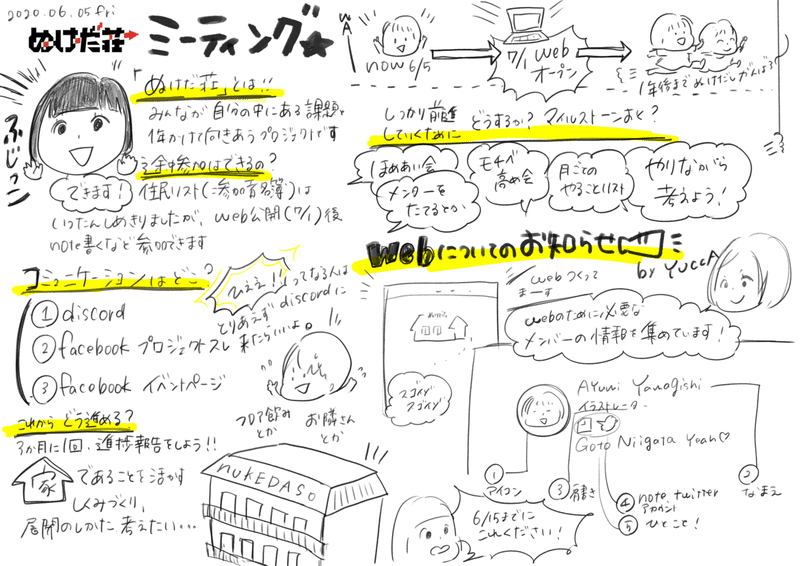 2020.06.05 fri
ぬけだ荘 ミーティング
ふじっこ
「ぬけだ荘」とは!!
みんなが自分の中にある課題と
1年かけて向きあうプロジェクトです
途中参加はできるの?
できます! 住民リスト(参加者名簿)は
いったんしめきりましたが、web公開(7/1)後
note書くなど参加できます
コミュニケーションはどこ?
ひええ!! ってなる人は
とりあえずdiscordに
来たらいいよ。
① discord
② facebook プロジェクトスレ
③ facebook イベントページ
これからどう進める?
3か月に1回、進捗報告をしよう!!
家 であることを活かす
しくみづくり、
展開のしかた考えたい…
フロア飲み
とか
お隣さん
とか
NUKEDASO
now 6/5
7/1 web
オープン
1年後まで ぬけだしがんばろ
しっかり前進
していくために どうするか? マイルストーンおく?
ほめあい会
メンターを
たてるとか
モチベ
高め会
月ごとの
やることリスト
やりながら
考えよう!
webについてのお知らせ
by YUCCA
webつくって
まーす
webのために必要な
メンバーの情報を集めています!
スゴイゾ
アゴイゾ
Ayumi Yanagishi
イラストレーター
Goto Niigata Yeah♡
① アイコン
② なまえ
③ 肩書き
④ note, twitter
アカウント
⑤ ひとこと!
6/15までに
これください!